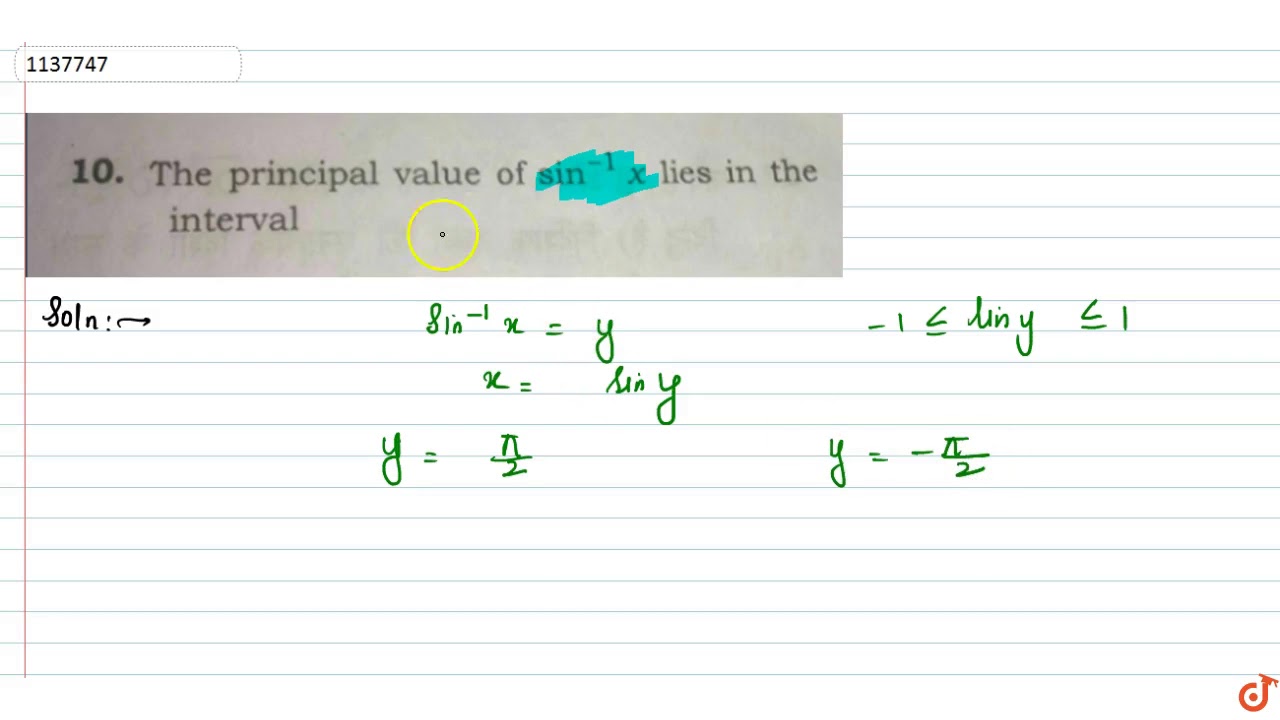 1137747
10. The principal value of sin⁻¹ x lies in the
interval
Soln:→
sin⁻¹ x = y
-1 ≤ sin y ≤ 1
x = sin y
y = π/2
y = -π/2